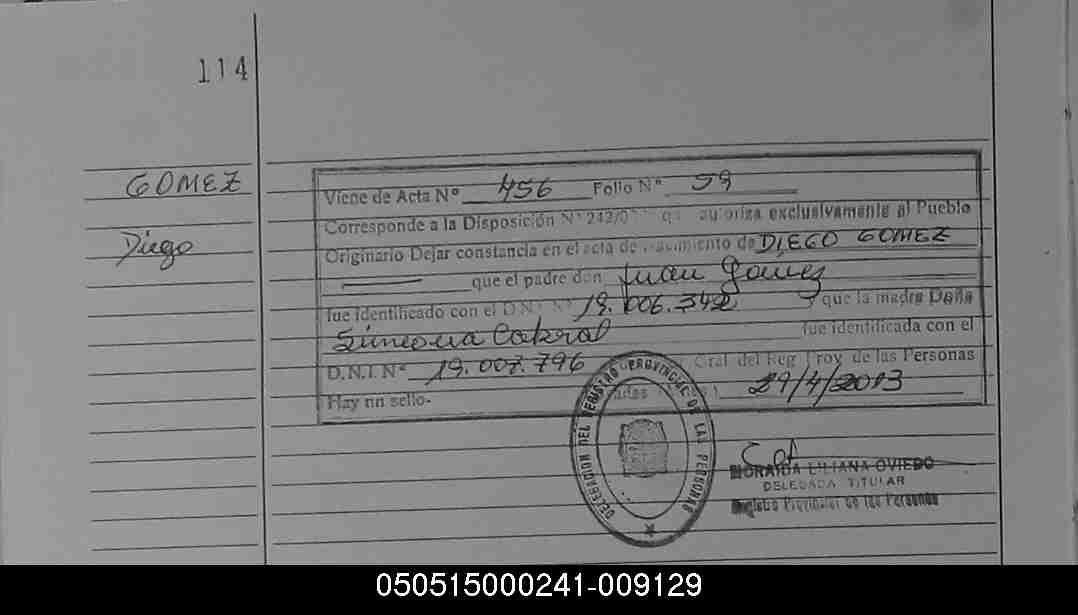 114
GOMEZ
Diego
Viene de Acta Nº 456 Folio Nº 59
Corresponde a la Disposición Nº 242/0 que autoriza exclusivamente al Pueblo
Originario Dejar constancia en el acta de nacimiento de DIEGO GOMEZ
que el padre don Juan Gomez
fue identificado con el D.N.I Nº 19.006.342 y que la madre Doña
Simeona Cabral fue identificada con el
D.N.I Nº 19.007.796 Gral del Reg Prov de las Personas
Hay un sello- 29/4/2013
DELEGACION DEL REGISTRO PROVINCIAL DE LAS PERSONAS
LILIANA OVIEDO
DELEGADA TITULAR
Registro Provincial de las Personas
050515000241-009129